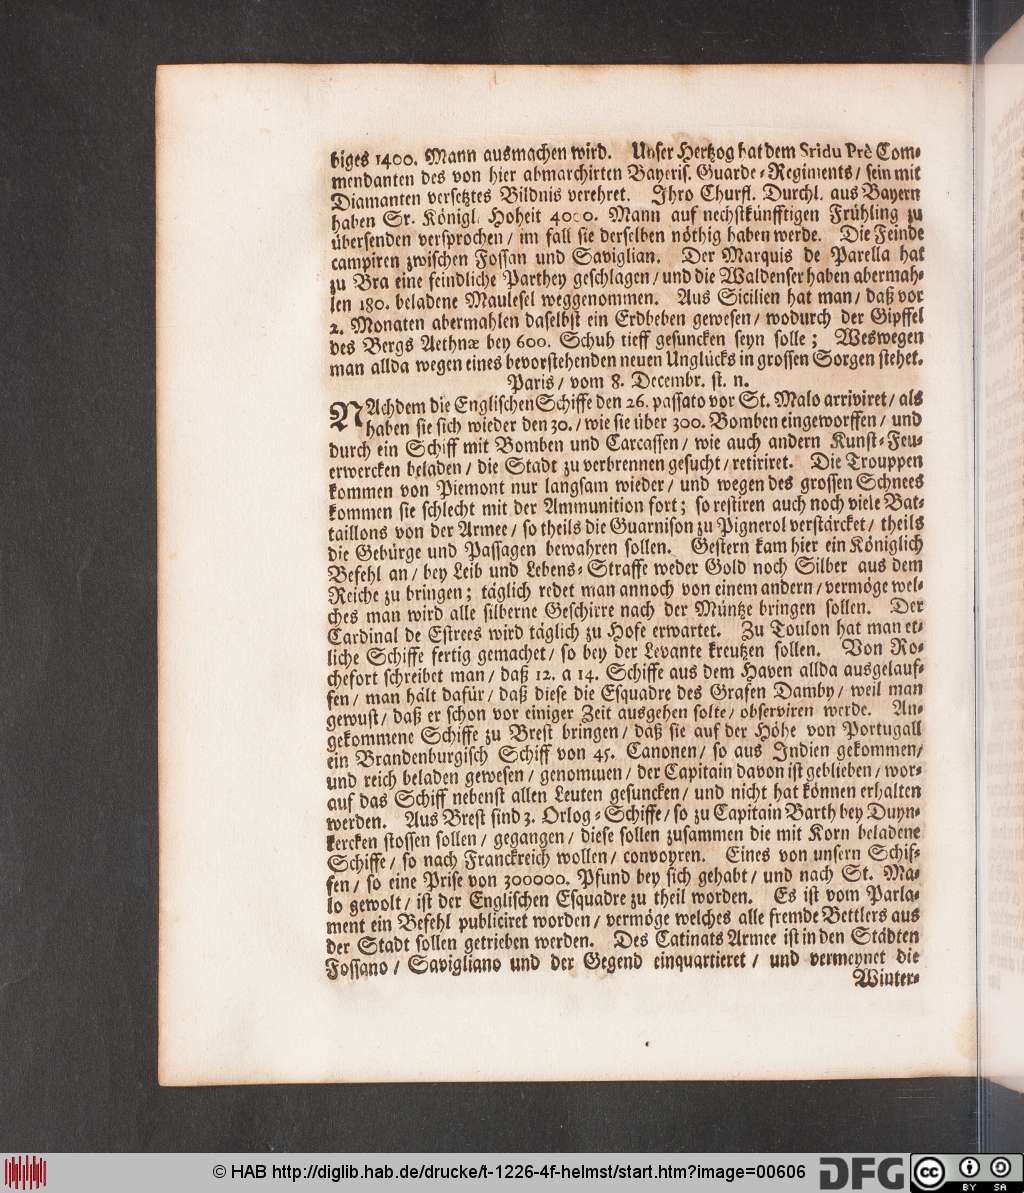 biges 1400. Mann ausmachen wird. Unser Hertzog hat dem Sr. du Prè Com-
mendanten des von hier abmarchirten Bayeris. Guarde-Regiments / sein mit
Diamanten versetztes Bildnis verehret. Ihro Churfl. Durchl. aus Bayern
haben Sr. Königl. Hoheit 4000. Mann auf nechstkünfftigen Frühling zu
übersenden versprochen / im fall sie derselben nöthig haben werde. Die Feinde
campiren zwischen Fossan und Saviglian. Der Marquis de Parella hat
zu Bra eine feindliche Parthey geschlagen / und die Waldenser haben abermah-
len 180. beladene Maulesel weggenommen. Aus Sicilien hat man / daß vor
2. Monaten abermahlen daselbst ein Erdbeben gewesen / wodurch der Gipffel
des Bergs Aethnæ bey 600. Schuh tieff gesuncken seyn solle; Weswegen
man allda wegen eines bevorstehenden neuen Unglücks in grossen Sorgen stehet.
Paris / vom 8. Decembr. st. n.
NAchdem die Englischen Schiffe den 26. passato vor St. Malo arriviret / als
haben sie sich wieder den 30. / wie sie über 300. Bomben eingeworffen / und
durch ein Schiff mit Bomben und Carcassen / wie auch andern Kunst-Feu-
erwercken beladen / die Stadt zu verbrennen gesucht / retiriret. Die Trouppen
kommen von Piemont nur langsam wieder / und wegen des grossen Schnees
kommen sie schlecht mit der Ammunition fort; so restiren auch noch viele Bat-
taillons von der Armee / so theils die Guarnison zu Pignerol verstärcket / theils
die Gebürge und Passagen bewahren sollen. Gestern kam hier ein Königlich
Befehl an / bey Leib und Lebens-Straffe weder Gold noch Silber aus dem
Reiche zu bringen; täglich redet man annoch von einem andern / vermöge wel-
ches man wird alle silberne Geschirre nach der Müntze bringen sollen. Der
Cardinal de Estrees wird täglich zu Hofe erwartet. Zu Toulon hat man et-
liche Schiffe fertig gemachet / so bey der Levante kreutzen sollen. Von Ro-
chefort schreibet man / daß 12. a 14. Schiffe aus dem Haven allda ausgelauf-
fen / man hält dafür / daß diese die Esquadre des Grafen Damby / weil man
gewust / daß er schon vor einiger Zeit ausgehen solte / observiren werde. An-
gekommene Schiffe zu Brest bringen / daß sie auf der Höhe von Portugall
ein Brandenburgisch Schiff von 45. Canonen / so aus Indien gekommen /
und reich beladen gewesen / genommen / der Capitain davon ist geblieben / wor-
auf das Schiff nebenst allen Leuten gesuncken / und nicht hat können erhalten
werden. Aus Brest sind 3. Orlog-Schiffe / so zu Capitain Barth bey Duyn-
kercken stossen sollen / gegangen / diese sollen zusammen die mit Korn beladene
Schiffe / so nach Franckreich wollen / convoyren. Eines von unsern Schif-
fen / so eine Prise von 300000. Pfund bey sich gehabt / und nach St. Ma-
lo gewolt / ist der Englischen Esquadre zu theil worden. Es ist vom Parla-
ment ein Befehl publiciret worden / vermöge welches alle fremde Bettlers aus
der Stadt sollen getrieben werden. Des Catinats Armee ist in den Städten
Fossano / Savigliano und der Gegend einquartieret / und vermeynet die
Winter-
© HAB http://diglib.hab.de/drucke/t-1226-4f-helmst/start.htm?image=00606
DFG
cc
BY SA